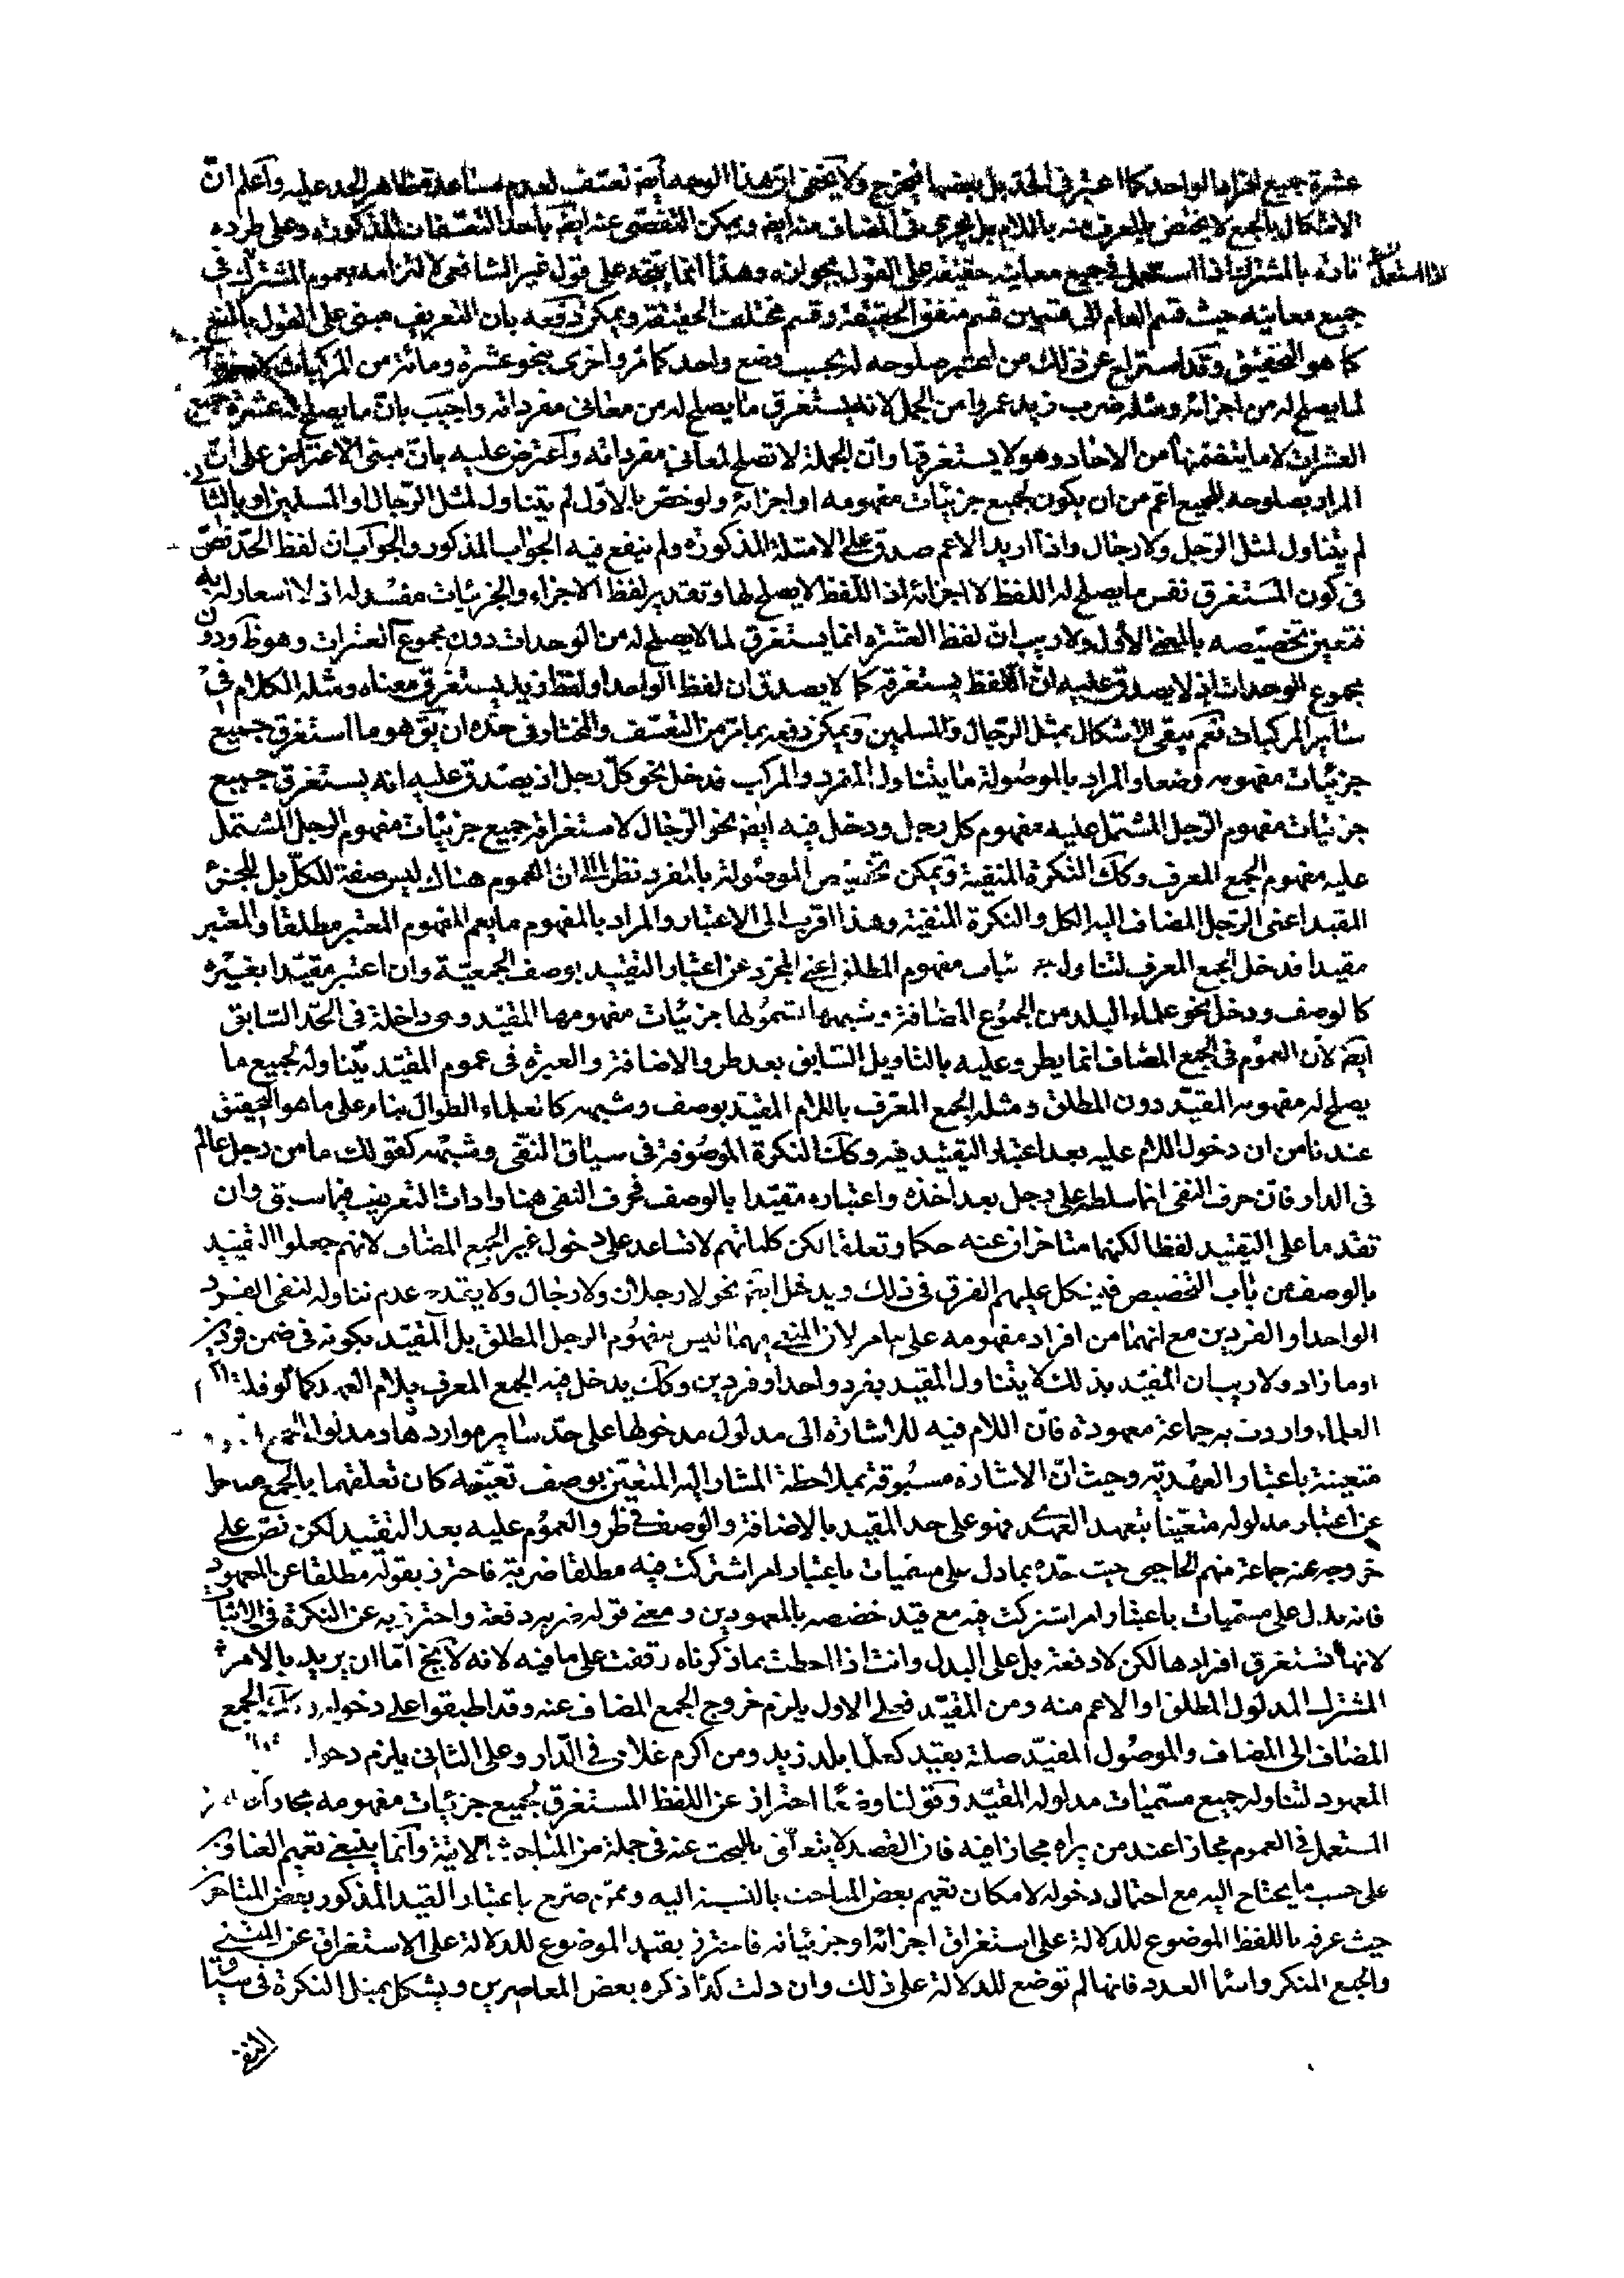 عشرة جميع اجزائها الواحد كما اعتبر في الحد بل بعضها فيخرج ولا يخفى ان هذا الوجه ايضا تعسف لعدم مساعدة ظاهر الحد عليه واعلم انّ
الاشكال بالجمع لا يختص بالمعرف منه باللام بل يجرى في المضاف منه ايضا ويمكن التفصّي عنه ايضا بأحد التعسّفات المذكورة وعلى طرده
تارة بالمشترك اذا استعمل في جميع معانيه حقيقة على القول بجوازه وهذا انما يتجه على قول غير الشافعي لالتزامه بعموم المشترك في
جميع معانيه حيث قسم العام الى قسمين قسم متفق الحقيقة وقسم مختلف الحقيقة ويمكن دفعه بان التعريف مبنى على القول بالمنع
كما هو التحقيق وقد استراح عن ذلك من اعتبر صلوحه له بحسب وضع واحد كما مر واخرى بنحو عشرة ومائة من المركبات
لما يصلح له من اجزائه ومثله ضرب زيد عمروا من الجمل لانه يستغرق ما يصلح له من معاني مفرداته واجيب بانّ ما يصلح له عشرة جميع
العشرات لا ما يتضمنها من الاحاد وهو لا يستغرقها وانّ الجملة لا تصلح لمعاني مفرداته واعترض عليه بانّ مبنى الاعتراض على انّ
المراد بصلوحه للجميع اعم من ان يكون لجميع جزئيات مفهومه او اجزائه ولو خصّ بالاوّل لم يتناول لمثل الرّجال والمسلمين او بالثاني
لم يتناول لمثل الرّجل ولا رجال واذا اريد الاعم صدق على الامثلة المذكورة ولم ينفع فيه الجواب المذكور والجواب ان لفظ الحدّ نصّ
في كون المستغرق نفس ما يصلح له اللفظ لا اجزائه اذ اللفظ لا يصلح لها وتقدير لفظ الاجزاء والجزئيات مفسد له اذ لا اشعار له به
فتعين تخصيصه بالمعنى الأول ولا ريب ان لفظ العشرة انما يستغرق لما لا يصلح له من الوحدات دون مجموع العشرات وهو ظ ودون
مجموع الوحدات اذ لا يصدق عليه انّ اللفظ يستغرقه كما لا يصدق ان لفظ الواحد او لفظ زيد يستغرق معناه ومثله الكلام في
ساير المركبات نعم يبقى الاشكال بمثل الرّجال والمسلمين ويمكن دفعه بما مرّ من التعسّف والمختار في حدّه ان يق هو ما استغرق جميع
جزئيات مفهومه وضعا والمراد بالموصولة ما يتناول المفرد والمركب فدخل نحو كلّ رجل اذ يصدق عليه انه يستغرق جميع
جزئيات مفهوم الرّجل المشتمل عليه مفهوم كل رجل ودخل فيه ايضا نحو الرّجال لاستغراقه جميع جزئيات مفهوم الرجل المشتمل
عليه مفهوم الجمع المعرف وكك النكرة المنفية ويمكن تخصيص الموصولة بالمفرد نظرا الى ان العموم هناك ليس صفة للكل بل للجزء
المقيد اعنى الرّجل المضاف اليه الكل والنكرة المنفية وهذا اقرب الى الاعتبار والمراد بالمفهوم ما يعم المفهوم المعتبر مطلقا والمعتبر
مقيدا فدخل الجمع المعرف لتناوله جزئيات مفهوم المطلق اعنى المجرّد عن اعتبار التقييد بوصف الجمعيّة وان اعتبر مقيّدا بغيره
كالوصف ودخل نحو علماء البلد من الجموع المضافة وشبهها لشمولها جزئيات مفهومها المقيّد وهي داخلة في الحدّ السّابق
ايضا لأن العموم في الجمع المضاف انما يطرو عليه بالتاويل السّابق بعد طرو الاضافة والعبرة في عموم المقيّد بتناوله لجميع ما
يصلح له مفهومه المقيّد دون المطلق ومثله الجمع المعرّف باللام المقيّد بوصف وشبهه كالعلماء الطوال بناء على ما هو التحقيق
عندنا من ان دخول اللام عليه بعد اعتبار التقييد فيه وكك النكرة الموصوفة في سياق النفى وشبهه كقولك ما من رجل عالم
في الدار فانّ حرف النفى انما سلط على رجل بعد اخذه واعتباره مقيّدا بالوصف فحرف النفى هنا وادات التعريف فيما سبق وان
تقدما على التقييد لفظا لكنهما متاخران عنه حكما وتعلقا لكن كلماتهم لا تساعد على دخول غير الجمع المضاف لانهم جعلوا التقييد
بالوصف من باب التخصيص فيشكل عليهم الفرق في ذلك ويدخل ايضا نحو لا رجلان ولا رجال ولا يقدح عدم تناوله لنفى الفرد
الواحد او الفردين مع انهما من افراد مفهومه على ما مر لان المنفى فيهما ليس مفهوم الرجل المطلق بل المقيّد بكونه في ضمن فردين
او ما زاد ولا ريب ان المقيّد بذلك لا يتناول المقيد بفرد واحد او فردين وكك يدخل فيه الجمع المعرف بلام العهد كما لو قلت
العلماء واردت به جماعة معهودة فانّ اللام فيه للاشارة الى مدلول مدخولها على حدّ ساير مواردها ومدلول الجمع
متعينة باعتبار العهدية وحيث انّ الاشارة مسبوقة بملاحظة المشار اليه المتعيّن بوصف تعيّنه كان تعلقهما بالجمع متاخرا
عن اعتبار مدلوله متعيّنا بتعهد العهد فهو على حد المقيد بالاضافة والوصف في طرو العموم عليه بعد التقييد لكن نصّ على
خروجه عنه جماعة منهم الحاجبى حيث حدّه بما دل على مسميات باعتبار امر اشتركت فيه مطلقا ضربة فاحترز بقوله مطلقا عن المعهود
فانه يدل على مسميات باعتبار امر اشتركت فيه مع قيد خصصه بالمعهودين ومعنى قوله ضربة دفعة واحترز به عن النكرة في الاثبات
لانها تستغرق افرادها لكن لا دفعة بل على البدل وانت اذا احطت بما ذكرناه وقفت على ما فيه لانه لا يخ امّا ان يريد بالامر
المشترك المدلول المطلق او الاعم منه ومن المقيّد فعلى الاول يلزم خروج الجمع المضاف عنه وقد اطبقوا على دخوله وكك الجمع
المضاف الى المضاف والموصول المقيّد صلته بقيد كعلماء بلد زيد ومن اكرم غلامى في الدّار وعلى الثاني يلزم دخول
المعهود لتناوله جميع مسمّيات مدلوله المقيّد وقولنا وضعا احتراز عن اللفظ المستغرق لجميع جزئيات مفهومه مجازا
المستعمل في العموم مجازا عند من يراه مجازا فيه فان القصد لا يتعلّق بالبحث عنه في جملة من المباحث الآتية وانما ينبغى تعميم العناوين
على حسب ما يحتاج اليه مع احتمال دخوله لامكان تعميم بعض المباحث بالنسبة اليه وممّن صرّح باعتبار القيد المذكور بعض المتاخرين
حيث عرفه باللفظ الموضوع للدلالة على استغراق اجزائه او جزئياته فاحترز بقيد الموضوع للدلالة على الاستغراق عن المثنى
والجمع المنكر واسماء العدد فانها لم توضع للدلالة على ذلك وان دلت كذا ذكره بعض المعاصرين ويشكل بمثل النكرة في سياق
النفى